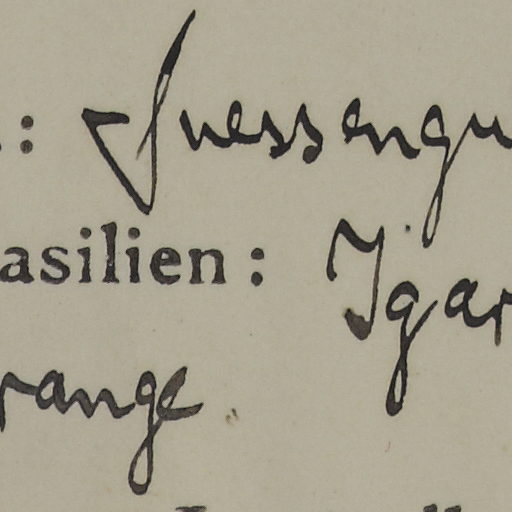 : Suessengu
asilien: Igar
range